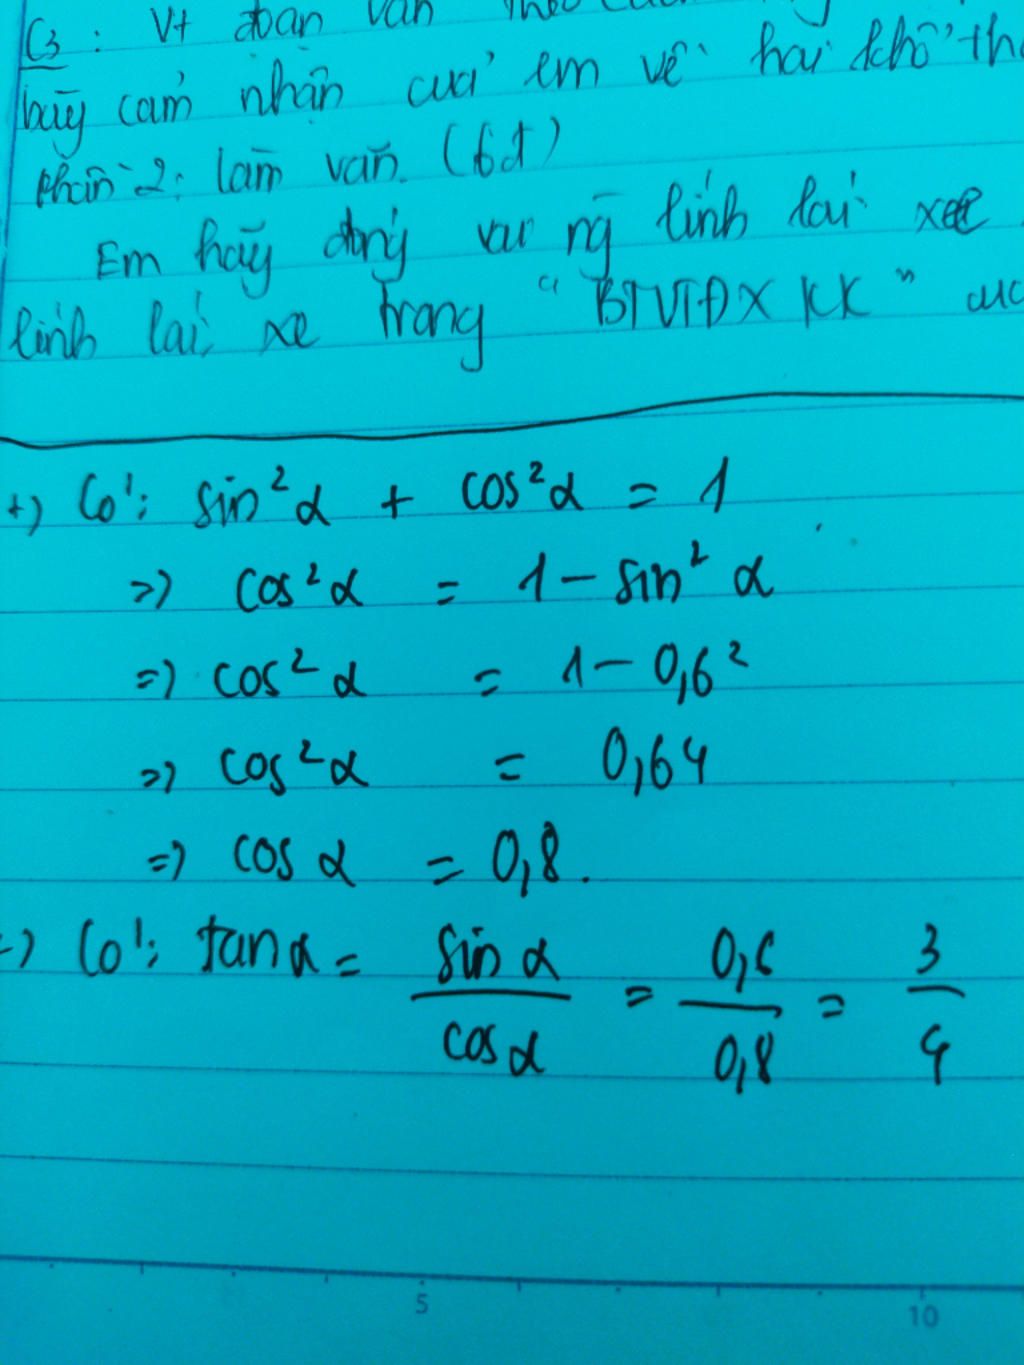 C3: Vt đoạn văn theo
bày cảm nhận của em về hai khổ th
Phần 2: làm văn. (6đ)
Em hãy đóng vai ng lính lái xe
lính lái xe trong "BTVTĐXKK" củ
+) Có: sin²α + cos²α = 1
=) cos²α = 1 - sin²α
=) cos²α = 1 - 0,6²
=) cos²α = 0,64
=) cos α = 0,8.
-) Có: tanα = sin α / cos α = 0,6 / 0,8 = 3 / 4
5 10